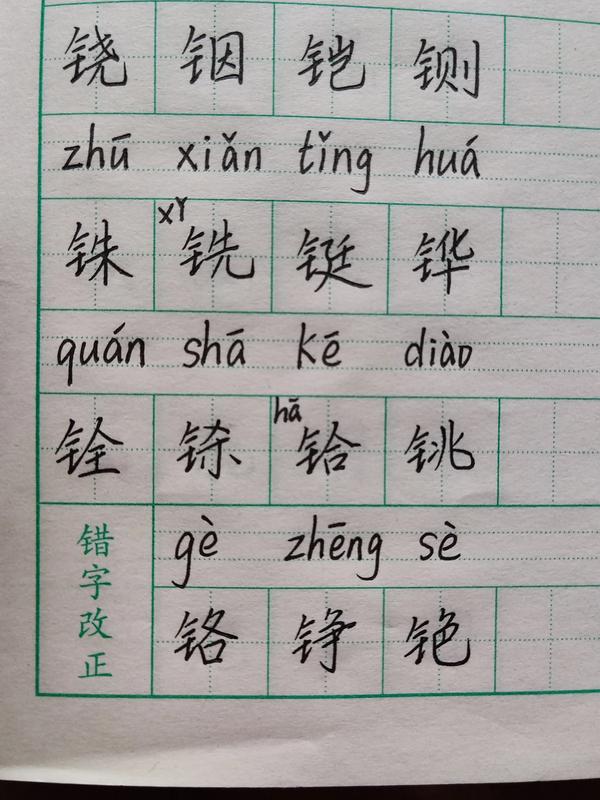 铙 铟 铠 铡
zhū xiǎn tǐng huá
铢 xǐ 铣 铤 铧
quán shā kē diào
铨 铩 hā 铪 铫
gè zhēng sè
铬 铮 铯
错字改正